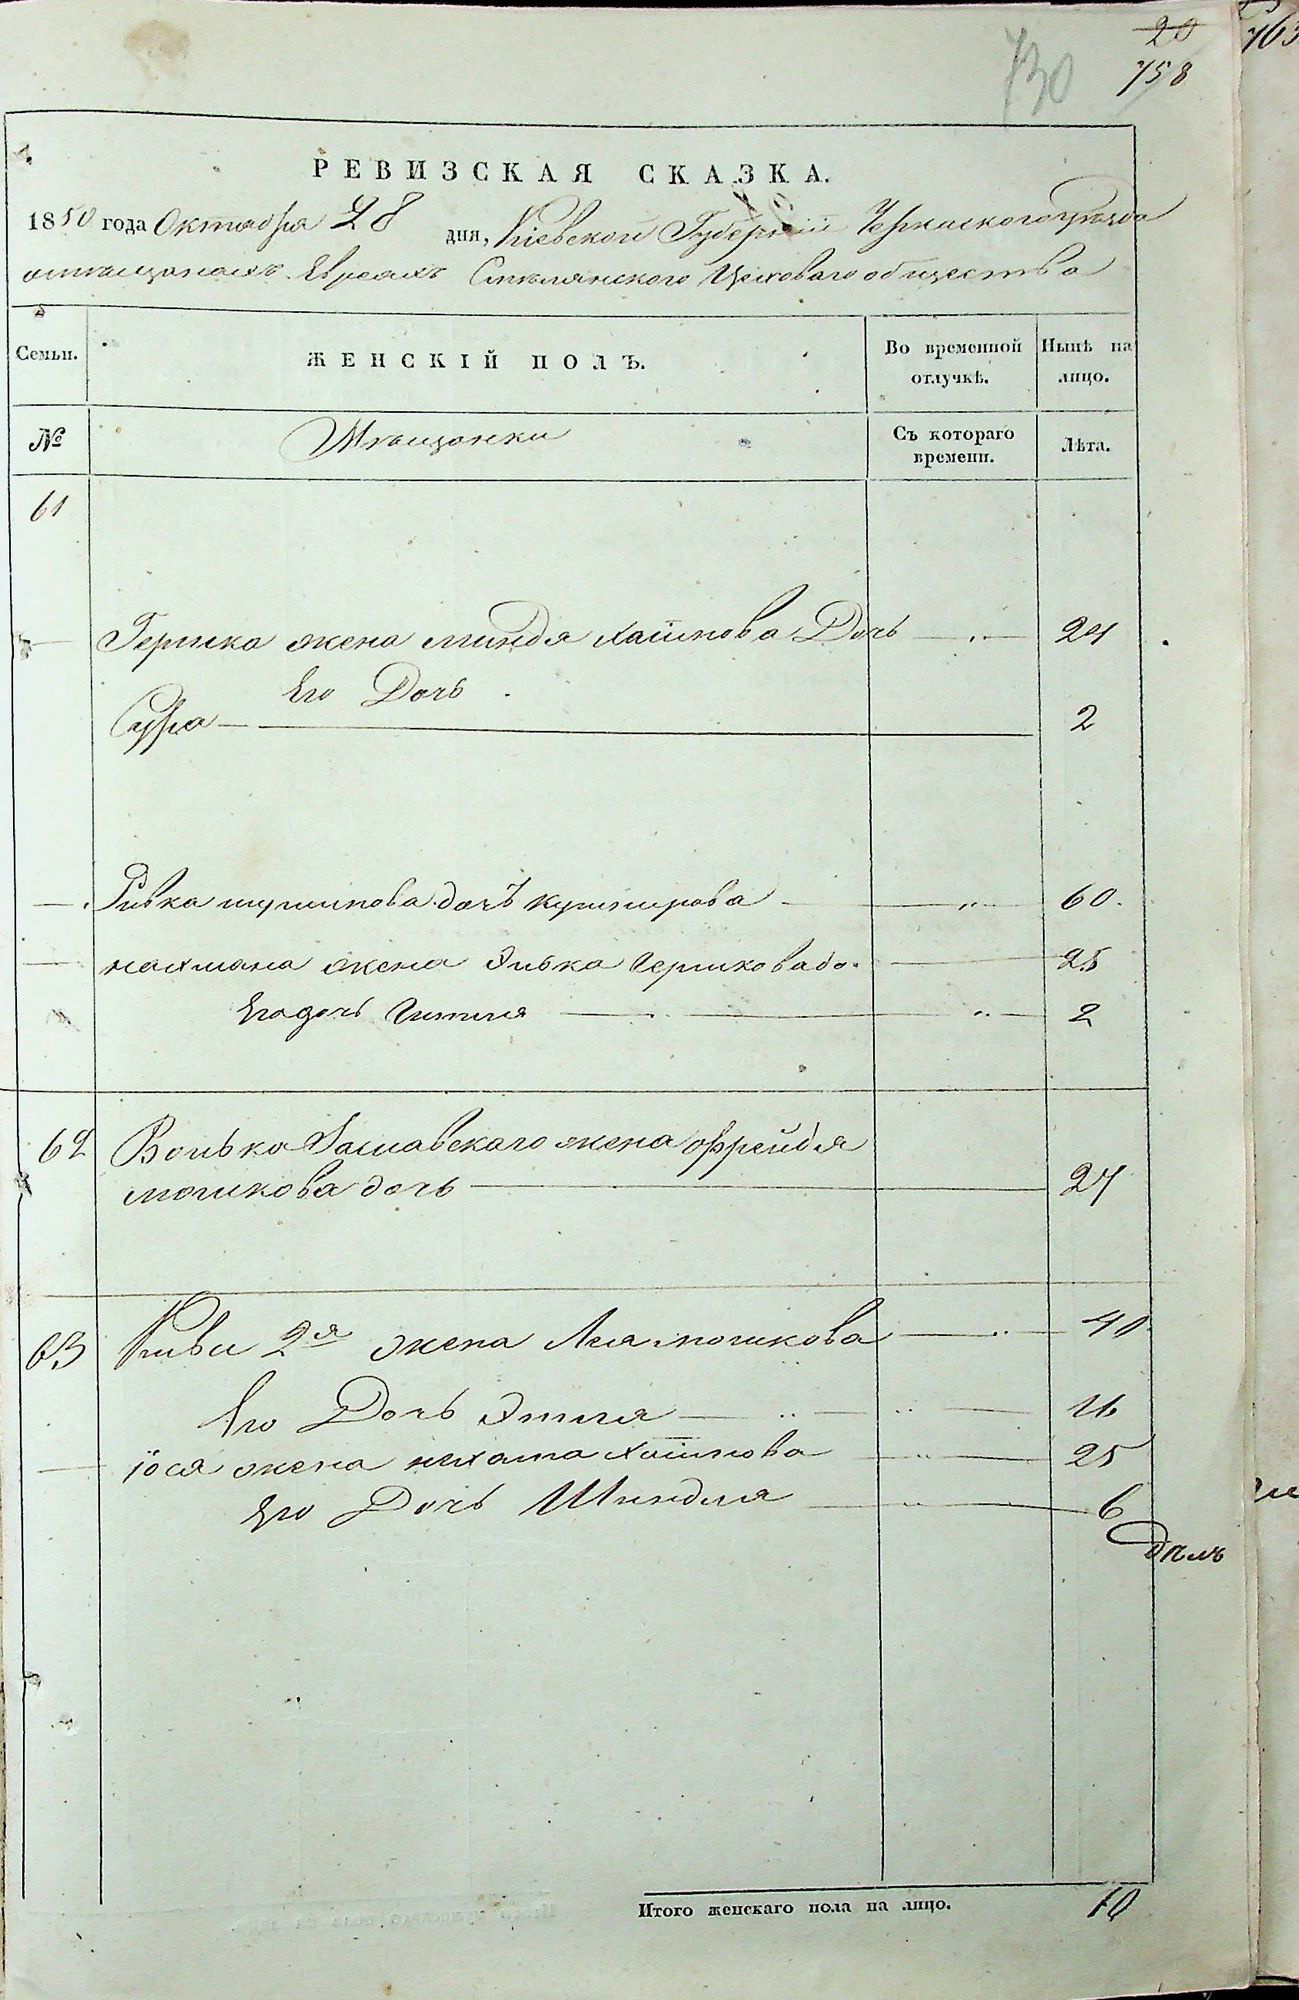 20
763
730
758
РЕВИЗСКАЯ СКАЗКА.
1850 года Октября 28 дня, Кіевской Губерніи Черкаскогоуѣзда
омѣщанахъ Евреяхъ Смѣлянского Цеховаго общества
Семьи.
ЖЕНСКІЙ ПОЛЪ.
Во временной отлучкѣ.
Нынѣ на лицо.
№
Мѣщанки
Съ котораго времени.
Лѣта.
61
Гершка жена Миндя Хаимова Дочь — „ — 24
Его Дочь
Сура — 2
Ривка дочь — „ — 60.
нахмана жена Элька Гершкова до. — 25
Егодочь Гитля — „ — 2
62 Волько Заславскаго жена Фрейдя
мошкова дочь — 27
63 Киви 2я жена Лея мошкова — „ — 40
Его Дочь Этля — „ — 16
Іося жена нехама Хаимова — „ — 25
Его Дочь Шиндля — „ — 6
Итого женскаго пола на лицо. 10